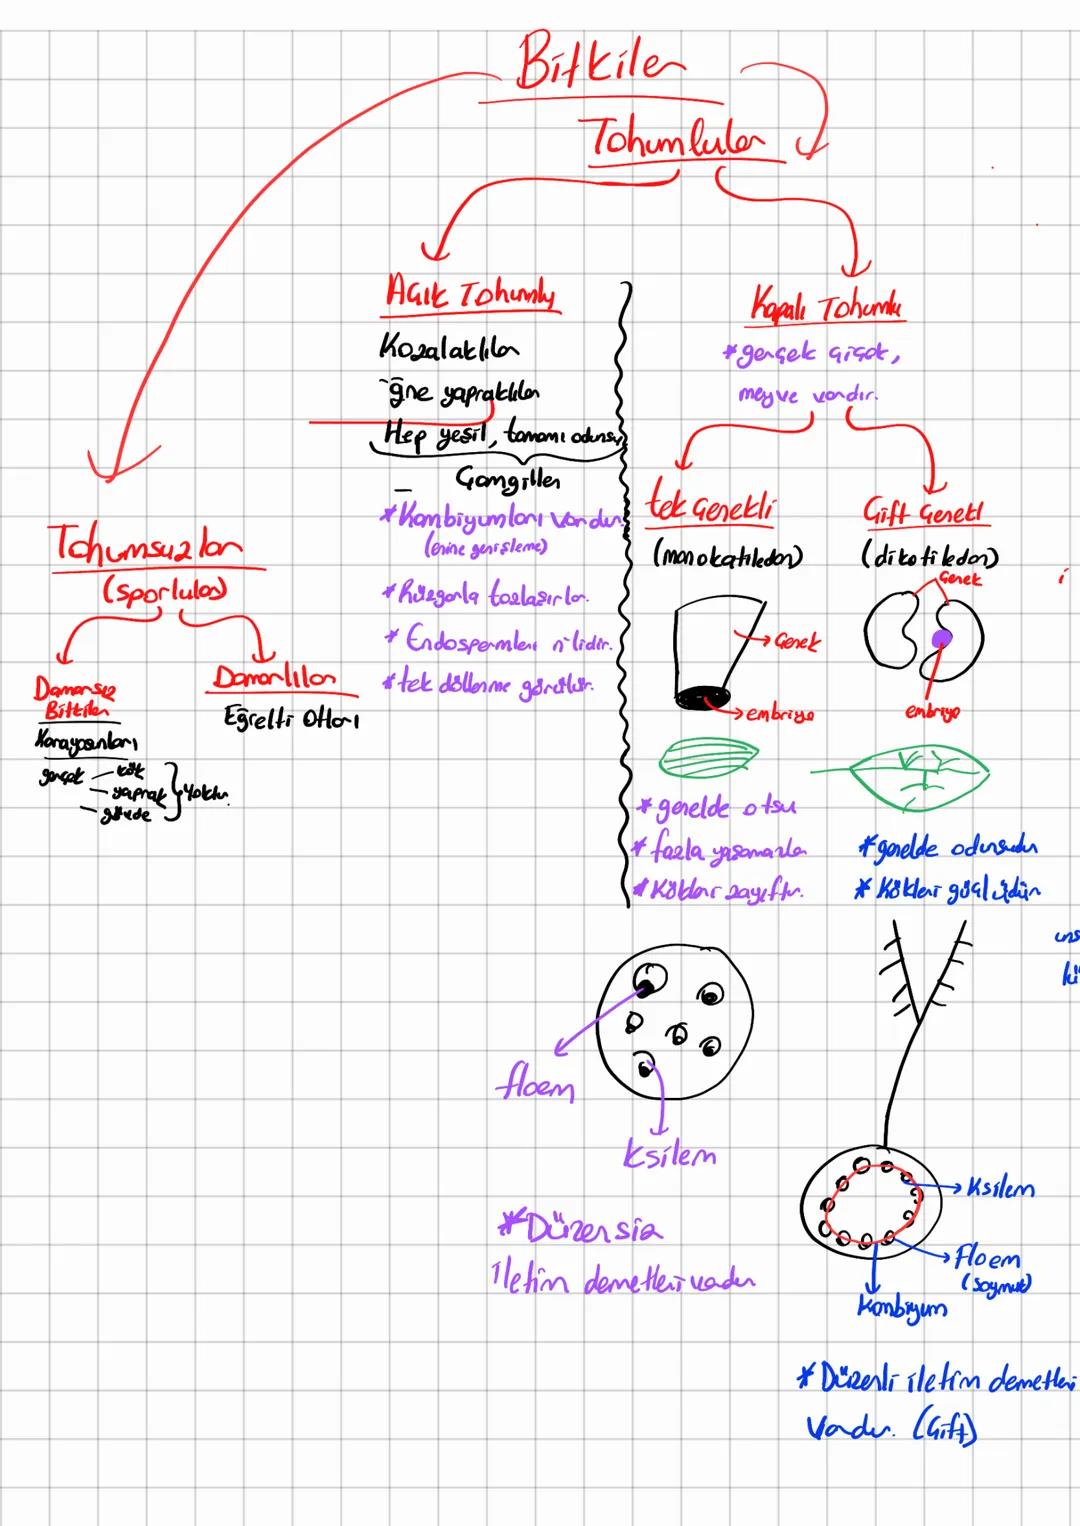 Bitkiler
Tohumlular
Açık Tohumlu
Kozalaklılar
İğne yapraklılar
Hep yeşil, tamamı odunsu
Çamgiller
* Kambiyumları vardır.
(enine genişleme)
* Rüzgarla tozlaşırlar.
* Endospermleri n'lidir.
* tek döllenme görülür.
Kapalı Tohumlu
* gerçek çiçek,
meyve vardır.
tek çenekli
(monokotiledon)
Çenek
embriyo
* genelde otsu
* fazla yaşamazla
* Kökler zayıftır.
Çift Çenekl
(dikotiledon)
Çenek
embriyo
* genelde odunsudur
* Kökleri güçlüdür
Tohumsuzlar
(sporlular)
Damarsız
Bitkiler
Karayosunları
gerçek - kök
- yaprak } yoktur.
- gövde
Damarlılar
Eğrelti Otları
floem
Ksilem
* Düzensiz
iletim demetleri vardır
Ksilem
Floem
(soymuk)
Kambiyum
* Düzenli iletim demetleri
Vardır. (Çift)